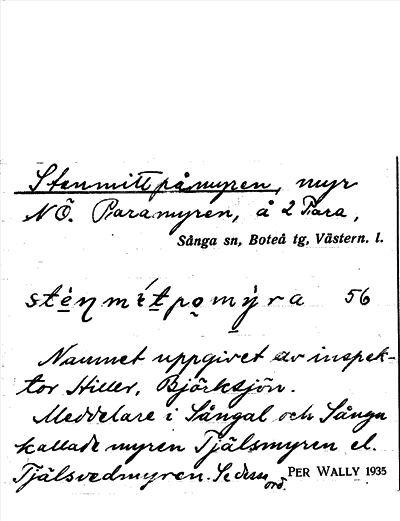 Stenmittpåmyren, myr
NÖ. Paramyren, å 2 Para,
Sånga sn, Boteå tg, Västern. l.
stèṇmítpo̯mỳra 56
Namnet uppgivet av inspek-
tor Hiller, Björksjön.
Meddelare i Sångal och Sånga
kallade myren Tjälsmyren el.
Tjälsvedmyren. Se dessa
ord.
PER WALLY 1935